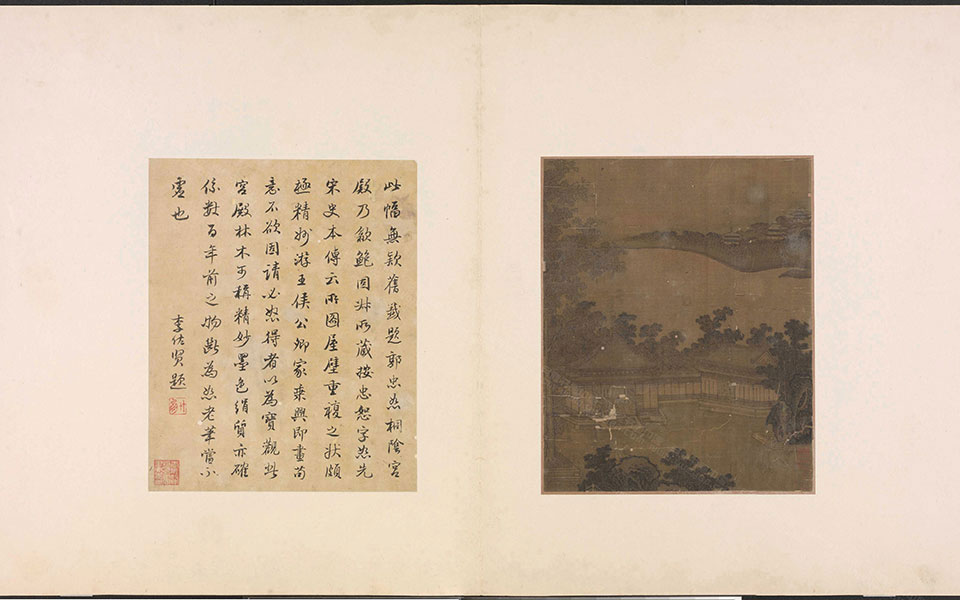 此幅無欵舊籤題郭忠恕桐陰宮
殿乃歙鮑固叔所藏按忠恕字恕先
宋史本傳云所圖屋壁重複之狀頗
極精妙游王侯公卿家乘興即畫苟
意不欲固請必怒得者以為寶觀此
宮殿林木可稱精妙墨色絹質亦確
係數百年前之物斷為恕老筆當不
虛也
李佐賢題